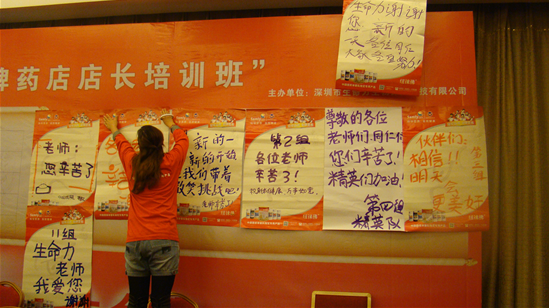 生命力谢谢
您
牌药店店长培训班”
主办单位：深圳市
技有限公司
老师：
您辛苦了
新的一
新的开始
我们带着
微笑挑战吧！
第2组
各位老师
辛苦了！
尊敬的各位
老师们：同仁们
您们辛苦了！
精英们加油！
第四组
精英队
伙伴们：
相信！！
明天
会
更美好
第三组
11组
生命力
老师
我爱您
谢谢